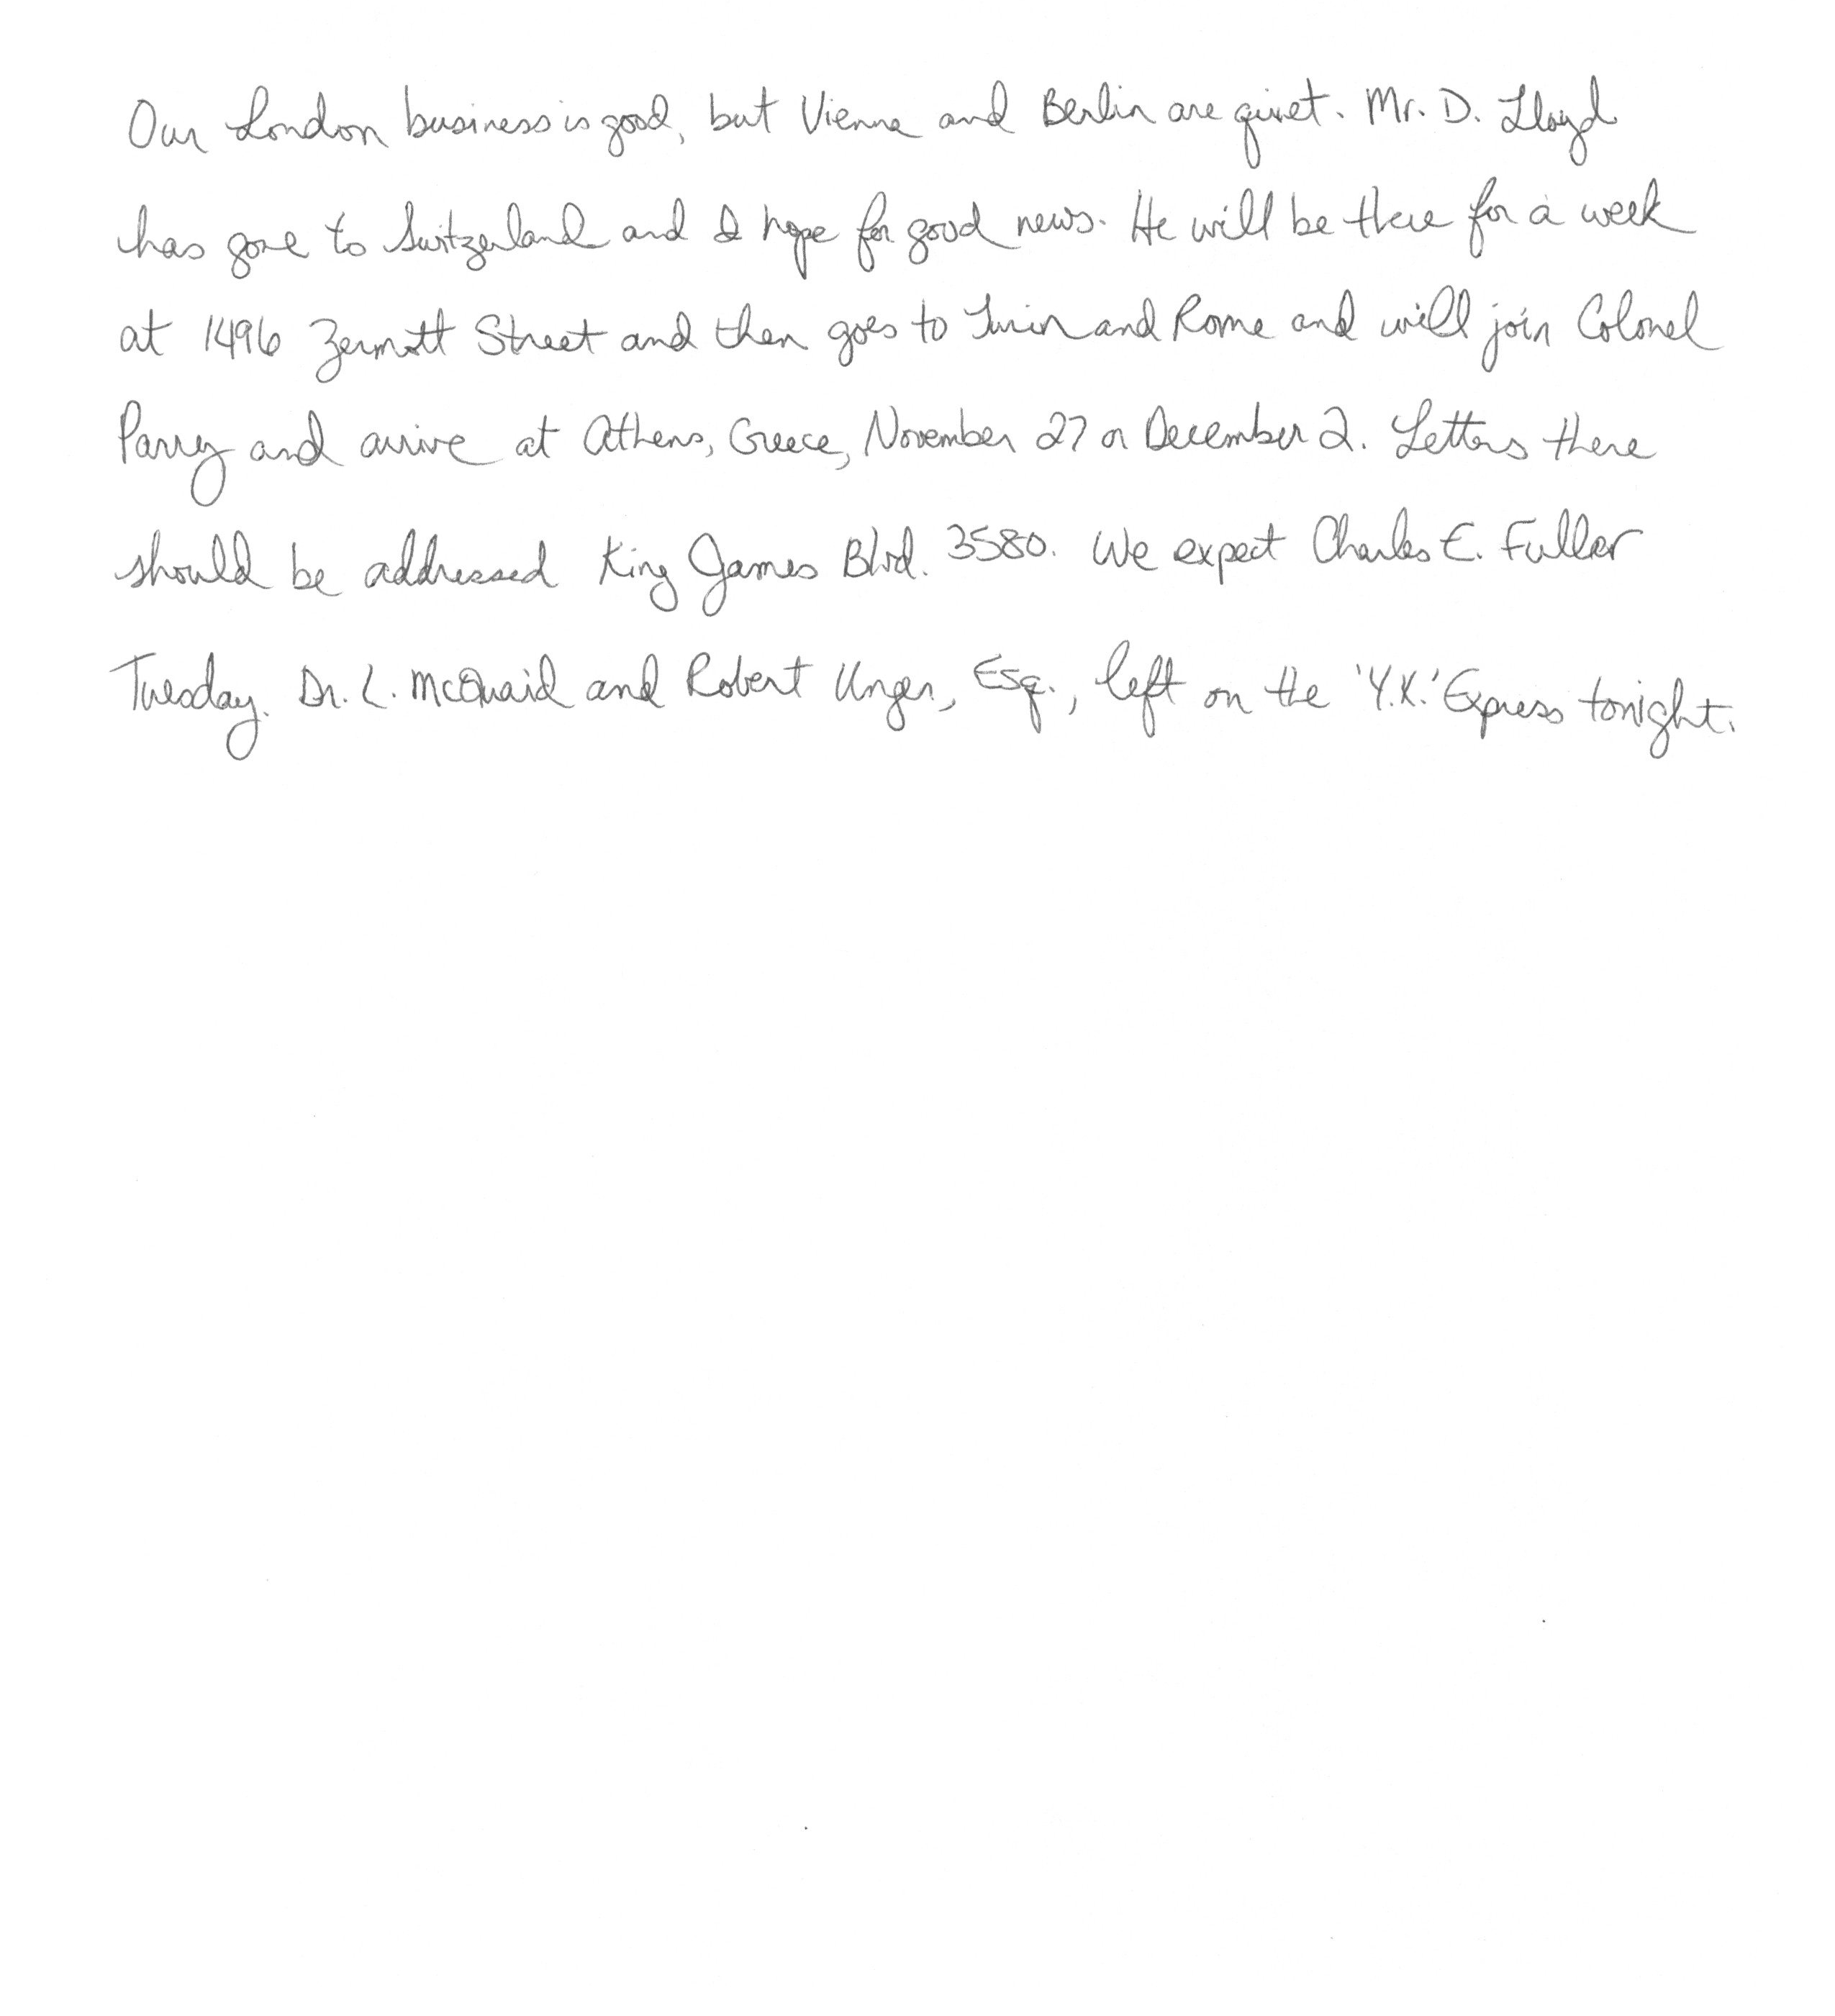 Our London business is good, but Vienna and Berlin are quiet. Mr. D. Lloyd
has gone to Switzerland and I hope for good news. He will be there for a week
at 1496 Zermott Street and then goes to Turin and Rome and will join Colonel
Parry and arrive at Athens, Greece, November 27 or December 2. Letters there
should be addressed King James Blvd. 3580. We expect Charles E. Fuller
Tuesday. Dr. L. McQuaid and Robert Unger, Esq., left on the 'Y.X.' Express tonight.